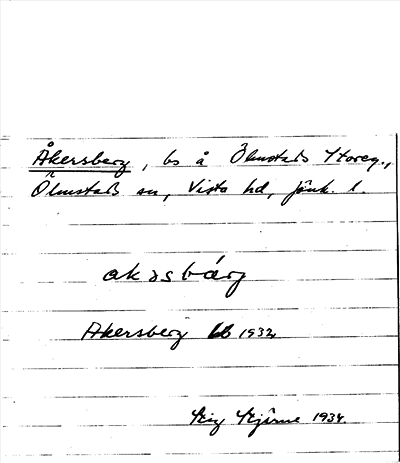 Åkersberg, bs å Ölmstads Storeg.,
Ölmstads sn, Vista hd, Jönk. l.
akəsbärj
Åkersberg 1932
Stig Stjärne 1934.